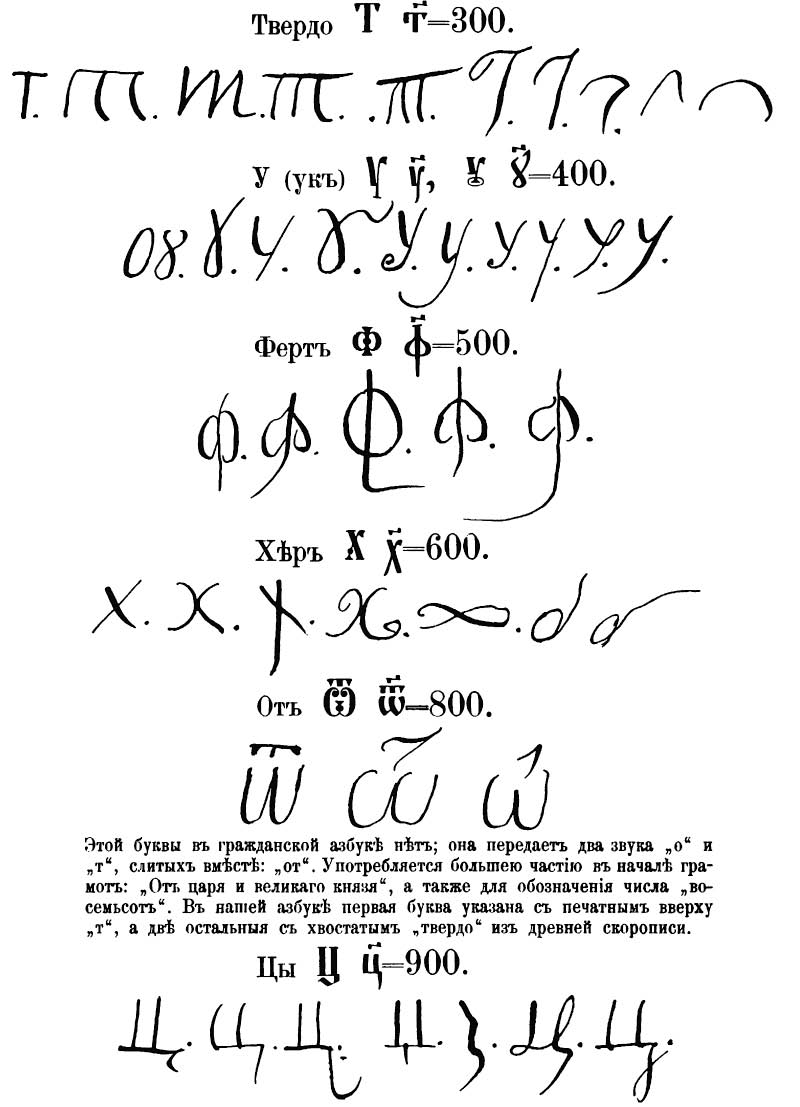 Твердо Т т҃=300.
Т. Т. Т. Т. Т. Т. Т. Т.
У (укъ) Ꙋ у҃, Ꙋ ꙋ҃=400.
Оу. Ꙋ. У. Ꙋ. У. У. У. У. У. У.
Фертъ Ф ф҃=500.
Ф. Ф. Ф. Ф. Ф.
Хѣръ Х х҃=600.
Х. Х. Х. Х. Х.
Отъ Ѿ ѿ҃=800.
Ѿ ѿ ѿ
Этой буквы въ гражданской азбукѣ нѣтъ; она передаетъ два звука „о“ и
„т“, слитыхъ вмѣстѣ: „от“. Употребляется большею частію въ началѣ гра-
мотъ: „Отъ царя и великаго князя“, а также для обозначенія числа „во-
семьсотъ“. Въ нашей азбукѣ первая буква указана съ печатнымъ вверху
„т“, а двѣ остальныя съ хвостатымъ „твердо“ изъ древней скорописи.
Цы Ц ц҃=900.
Ц. Ц. Ц. Ц. Ц. Ц. Ц.